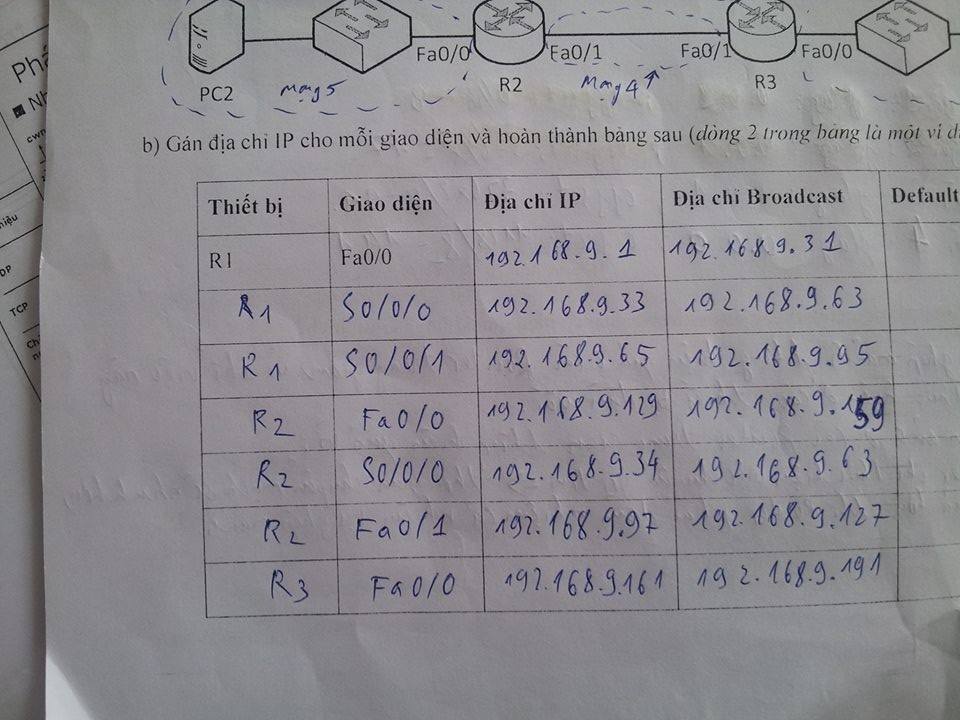 Fa0/0
Fa0/1
Fa0/1
Fa0/0
PC2
mạng 5
R2
Mạng 4
R3
b) Gán địa chỉ IP cho mỗi giao diện và hoàn thành bảng sau (dòng 2 trong bảng là một ví
Thiết bị Giao diện Địa chỉ IP Địa chỉ Broadcast Default
R1 Fa0/0 192.168.9.1 192.168.9.31
R1 S0/0/0 192.168.9.33 192.168.9.63
R1 S0/0/1 192.168.9.65 192.168.9.95
R2 Fa0/0 192.168.9.129 192.168.9.159
R2 S0/0/0 192.168.9.34 192.168.9.63
R2 Fa0/1 192.168.9.97 192.168.9.127
R3 Fa0/0 192.168.9.161 192.168.9.191
TCP